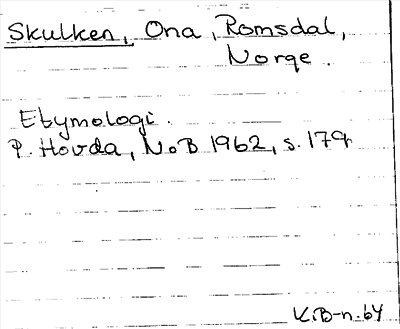 Skulken, Ona, Romsdal,
Norge.
Etymologi.
P. Hovda, NoB 1962, s. 179.
K.B-n. 64